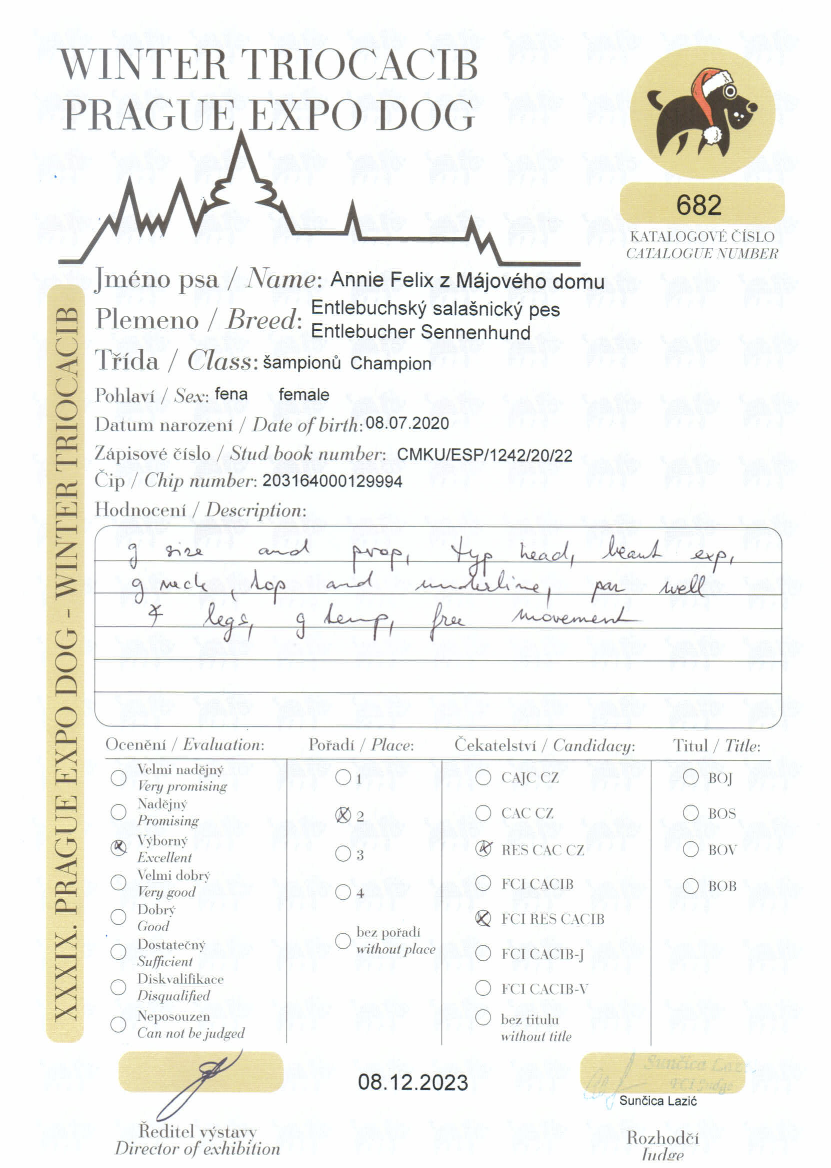 WINTER TRIOCACIB
PRAGUE EXPO DOG
682
KATALOGOVÉ ČÍSLO
CATALOGUE NUMBER
XXXIX. PRAGUE EXPO DOG - WINTER TRIOCACIB
Jméno psa / Name: Annie Felix z Májového domu
Plemeno / Breed: Entlebuchský salašnický pes
Entlebucher Sennenhund
Třída / Class: šampionů Champion
Pohlaví / Sex: fena female
Datum narození / Date of birth: 08.07.2020
Zápisové číslo / Stud book number: CMKU/ESP/1242/20/22
Čip / Chip number: 203164000129994
Hodnocení / Description:
g size and prop, typ head, beaut exp,
g neck, top and underline, par well
legs, g temp, free movement
Ocenění / Evaluation:
Velmi nadějný
Very promising
Nadějný
Promising
Výborný
Excellent
Velmi dobrý
Very good
Dobrý
Good
Dostatečný
Sufficient
Diskvalifikace
Disqualified
Neposouzen
Can not be judged
Pořadí / Place:
1
2
3
4
bez pořadí
without place
Čekatelství / Candidacy:
CAJC CZ
CAC CZ
RES CAC CZ
FCI CACIB
FCI RES CACIB
FCI CACIB-J
FCI CACIB-V
bez titulu
without title
Titul / Title:
BOJ
BOS
BOV
BOB
08.12.2023
Ředitel výstavy
Director of exhibition
Sunčica Lazić
FCI Judge
Sunčica Lazić
Rozhodčí
Judge